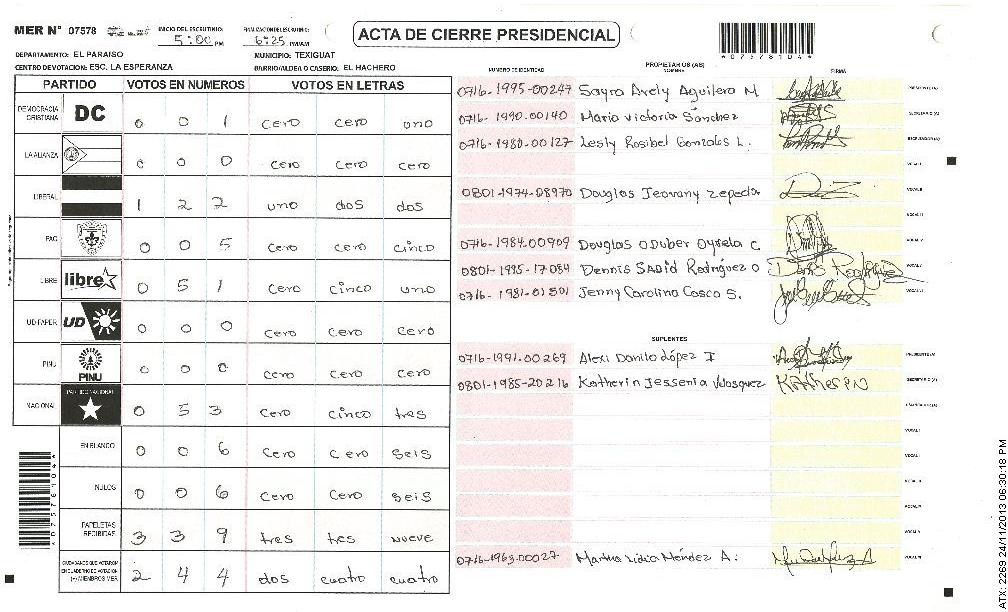 MER N° 07578 INICIO DEL ESCRUTINIO: 5:00 PM FINALIZACION DEL ESCRUTINIO: 6:25 PM/AM ACTA DE CIERRE PRESIDENCIAL
DEPARTAMENTO: EL PARAISO MUNICIPIO: TEXIGUAT
CENTRO DE VOTACION: ESC. LA ESPERANZA BARRIO/ALDEA O CASERIO: EL HACHERO
PARTIDO VOTOS EN NUMEROS VOTOS EN LETRAS
DEMOCRACIA CRISTIANA DC 0 0 1 cero cero uno
LA ALIANZA 0 0 0 cero cero cero
LIBERAL 1 2 2 uno dos dos
PAC 0 0 5 cero cero cinco
LIBRE libre 0 5 1 cero cinco uno
UD-FAPER UD 0 0 0 cero cero cero
PINU PINU 0 0 0 cero cero cero
NACIONAL PARTIDO NACIONAL 0 5 3 cero cinco tres
EN BLANCO 0 0 6 cero cero seis
NULOS 0 0 6 cero cero seis
PAPELETAS RECIBIDAS 3 3 9 tres tres nueve
CIUDADANOS QUE VOTARON EN CUADERNO DE VOTACION (+) MIEMBROS MER 2 4 4 dos cuatro cuatro
PROPIETARIOS (AS)
NUMERO DE IDENTIDAD NOMBRE FIRMA
0716-1995-00247 Sayra Arely Aguilera M PRESIDENTE(A)
0716-1990-00140 Maria Victoria Sánchez SECRETARIO (A)
0716-1980-00127 Lesly Rosibel Gonzales L. ESCRUTADOR(A)
VOCAL I
0801-1974-08970 Douglas Jeovany Zepeda VOCAL II
VOCAL III
0716-1984-00909 Douglas Oduber Oyuela C.
0801-1995-17084 Dennis SADid Rodríguez O VOCAL V
0716-1981-01501 Jenny Carolina Cosco S.
SUPLENTES
0716-1991-00269 Alexi Danilo López I PRESIDENTE(A)
0801-1985-20216 Katherin Jessenia Velasquez KATHERIN SECRETARIO (A)
VOCAL I
0716-1963-00027 Martha Lidia Méndez A.
*07578104*
ATX: 2269 24/11/2013 06:30:18 PM